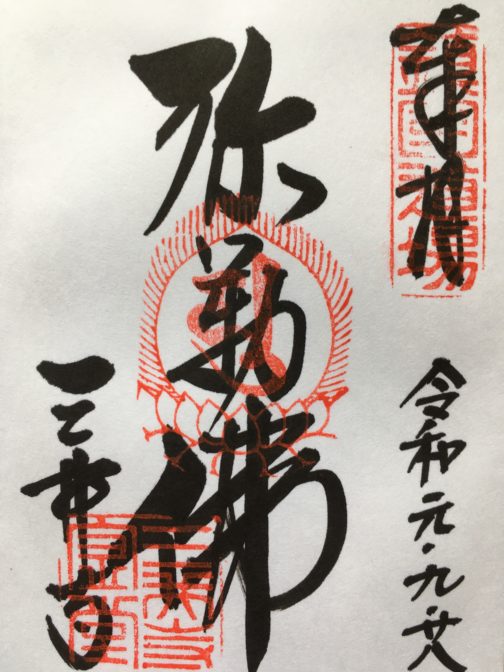 奉拝
令和元・九・廿八
弥勒佛
三井寺